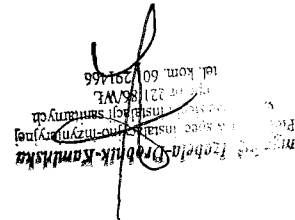 mgr inż. Izabela Drobnik-Kamińska
spec. instalacyjno-inżynieryjnej
instalacji sanitarnych
upr. nr 221/86/WŁ
tel. kom. 60 291466